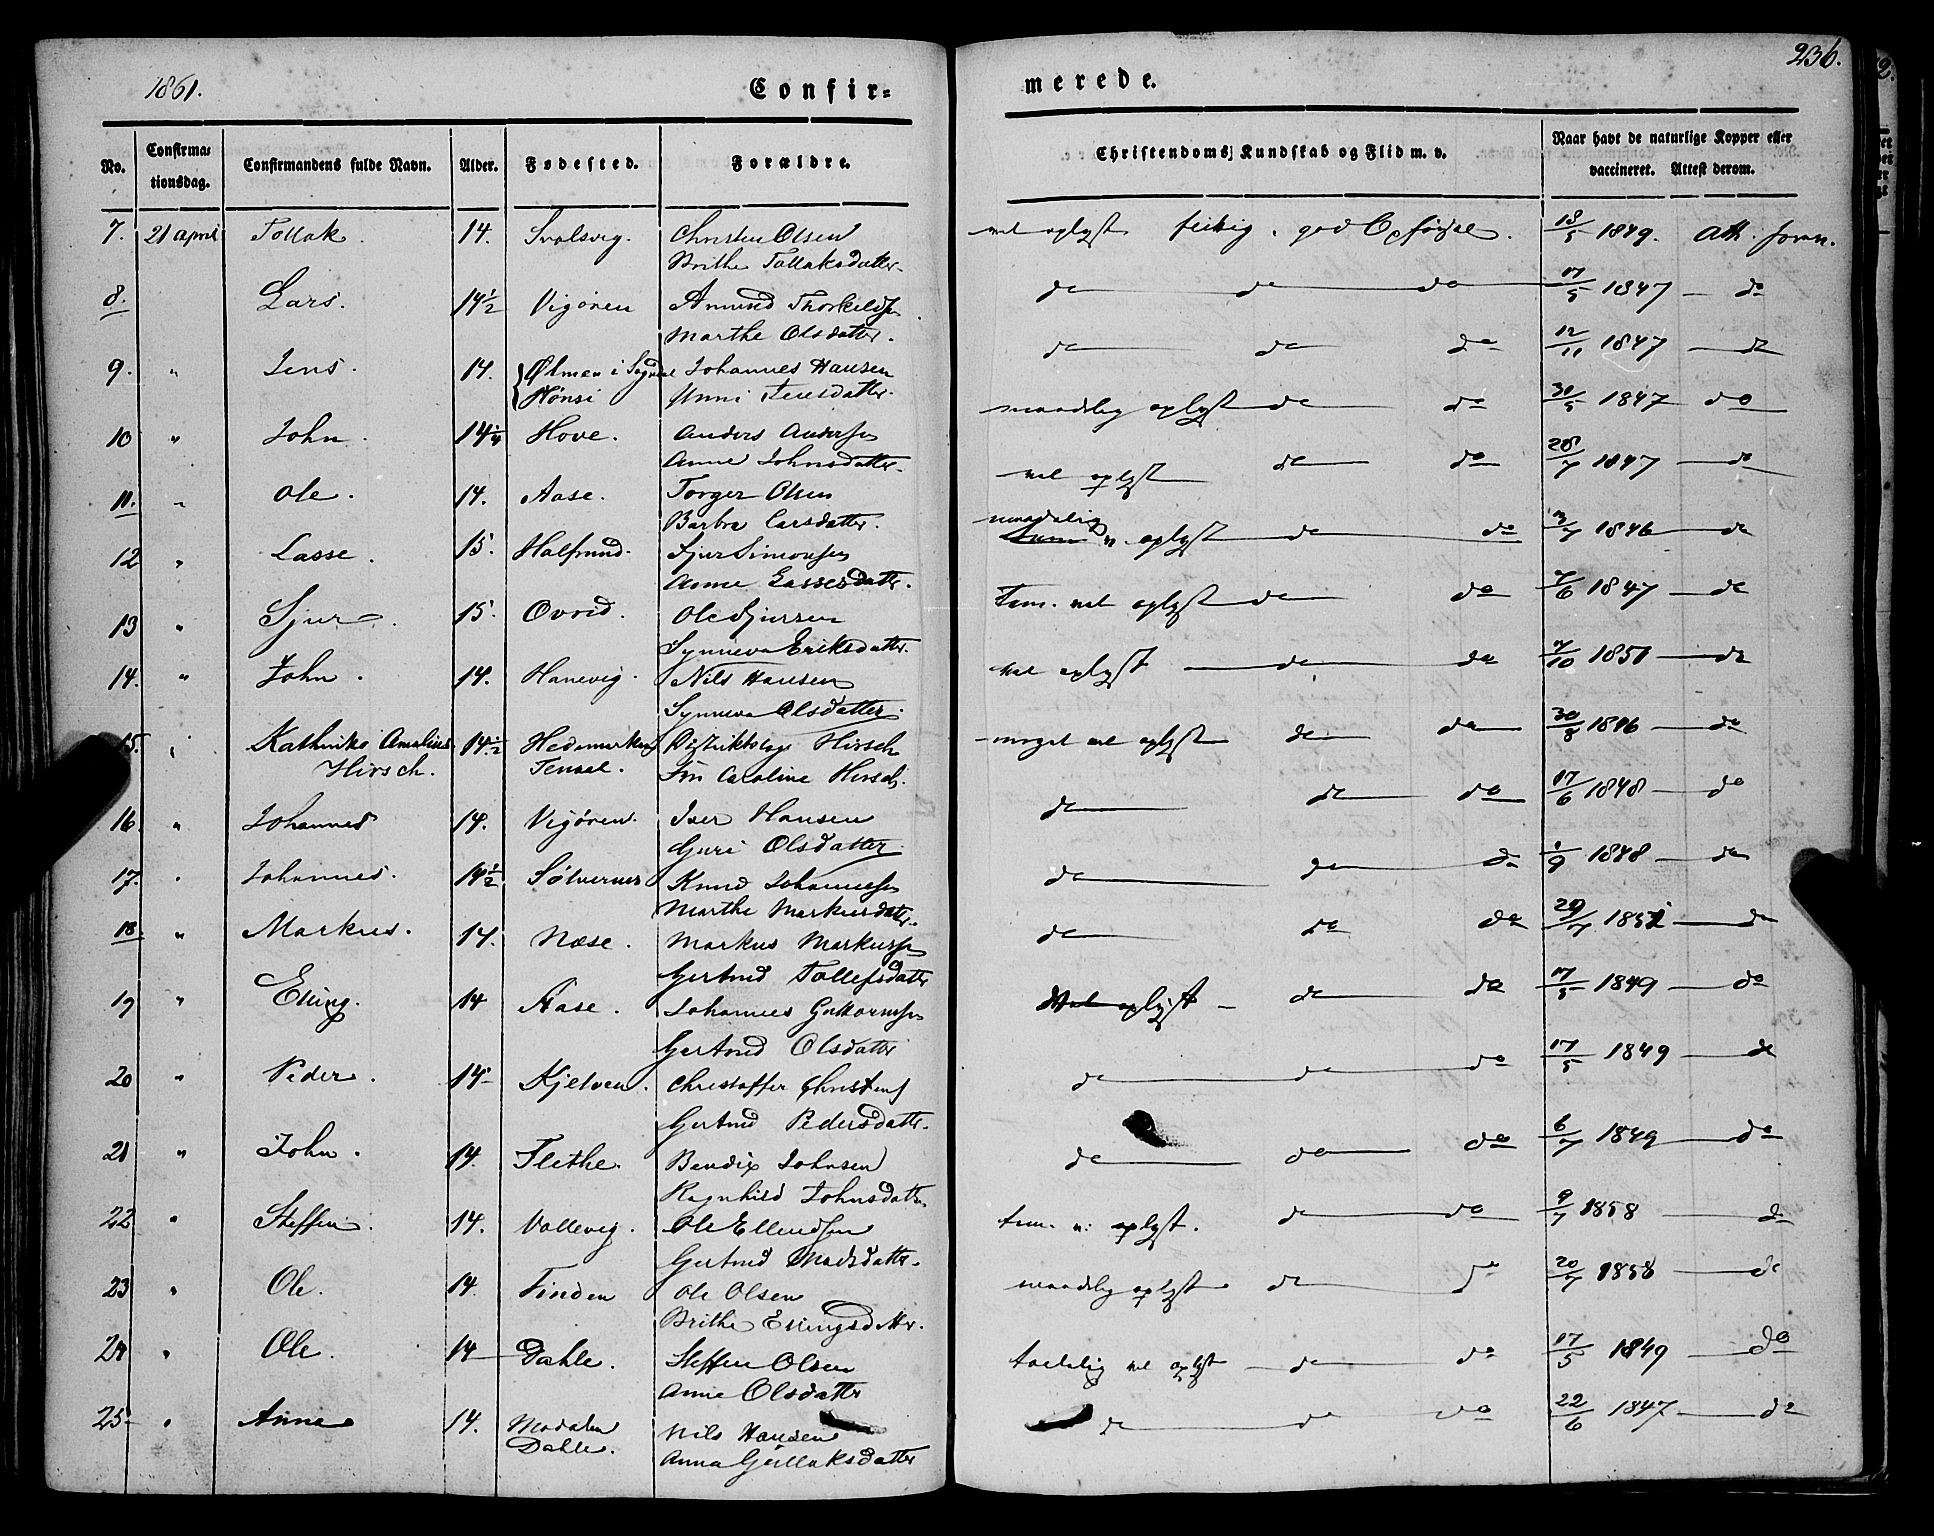 1861.
Confir=
No.
Confirma=
tionsdag.
Confirmandens fulde Navn.
Alder.
Fødested.
Forældre.
7. 21 April Tollak. 14. Svalsvig. Christen Olsen
Brithe Tollaksdatter.
8. Lars. 14½ Vigøren Amund Thorkeldsen
Marthe Olsdatter.
9. " Jens. 14. Ølmen i Sogndal Johannes Hansen
Hønsi Unni Jensdatter.
10 " John. 14¼ Hove. Anders Andersen
Anne Johnsdatter.
11. " Ole. 14. Aase. Torger Olsen
Barbra Larsdatter.
12 " Lasse. 15. Halfrund. Sjur Simonsen
Anne Lassesdatter.
13 " Sjur. 15. Ovrid. Ole Sjursen
Synneva Eriksdatter.
14. " John. 14. Hanevig. Nils Hansen
Synneva Olsdatter.
15. " Kathinka Amalie 14½ Hedemarken Distriktslæge Hirsch
Hirsch. Caroline Hirsch.
16. " Johannes 14. Vigøren. Iver Hansen
Guri Olsdatter
17. " Johannes. 14½ Sølvernes Knud Johannesen
Marthe Markusdatter.
18. " Markus. 14. Næse. Markus Markusen
Gertrud Tollefsdatter
19 " Elling. 14 Aase. Johannes Guttormsen
Gertrud Olsdatter
20 " Peder. 14 Kjelven. Christoffer Christens
Gertrud Pedersdatter.
21 " John. 14. Flethe. Bendix Johnsen
Ragnhild Johnsdatter
22 " Steffen. 14. Vallevig. Ole Ellendsen
Gertrud Madsdatter.
23 " Ole. 14. Finden Ole Olsen
Brithe Ellingsdatter.
24 " Ole. 14 Dahle. Steffen Olsen
Anne Olsdatter
25 " Anna 14. Modalen Nils Hansen
Dahle. Anna Gullaksdatter
236.
merede.
Christendoms Kundskab og Flid m. v.
Naar havt de naturlige Kopper eller
vaccineret. Attest derom.
vel oplyst flittig. god Opførsel. 18/5 1849. Att.
do do do 17/5 1847 do
do do do 12/11 1847 do
maadelig oplyst do do 30/5 1847 do
vel oplyst do do 28/7 1847 do
maadelig oplyst do do 3/7 1846 do
Tem. vel oplyst do do 7/6 1847 do
vel oplyst do do 7/10 1851 do
meget vel oplyst do do 30/8 1846 do
do do do 17/6 1848 do
do do do 1/9 1848 do
do do do 29/7 1851 do
Vel oplyst do do 17/5 1849 do
do do do 17/5 1849 do
do do do 6/7 1849 do
tem. v: oplyst. do do 9/7 1858 do
maadelig oplyst do do 20/7 1858 do
vel oplyst do do 17/5 1849 do
do do do 22/6 1847 do